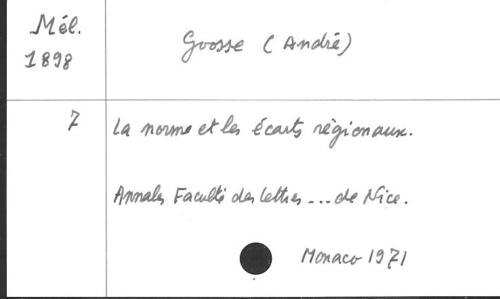 Mél.
1898
Goosse (André)
7
La norme et les écarts régionaux.
Annales Faculté des lettres ... de Nice.
Monaco 1971